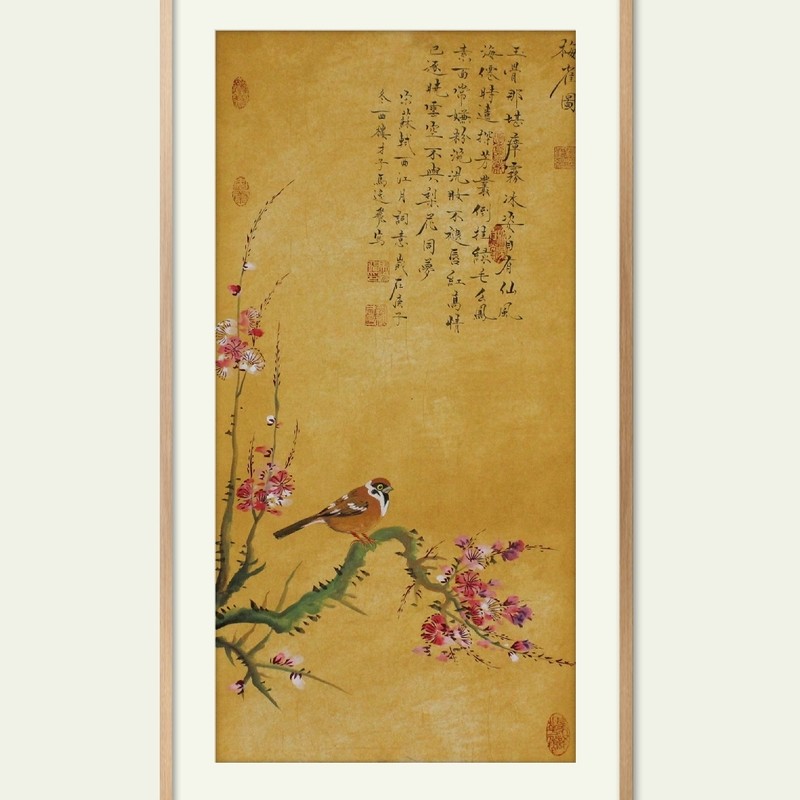 梅雀圖
玉骨那堪瘴霧冰姿自有仙風
海僊時遣探芳叢倒挂綠毛么鳳
素面常嫌粉涴洗妝不褪唇紅高情
已逐曉雲空不與梨花同夢
宋蘇軾西江月詞意歲在庚子
冬西樓才子馬逸農寫